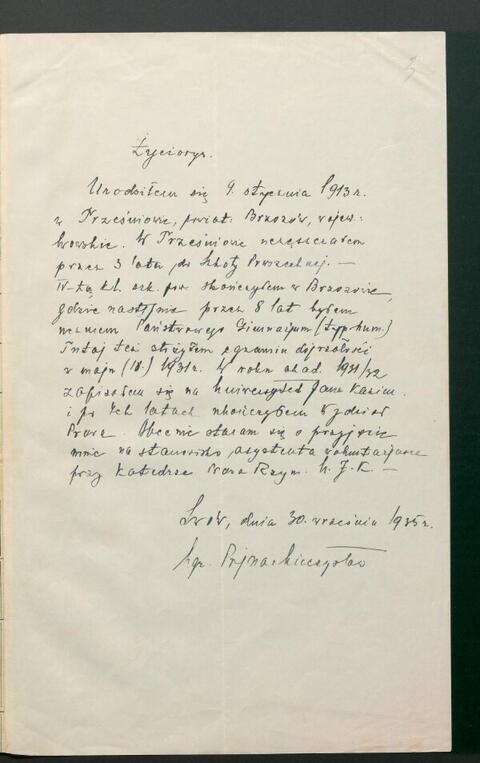 Życiorys.
Urodziłem się 9. stycznia 1913 r.
w Przeświowie, powiat: Brzozów, wojew.
lwowskie. W Przeświowie uczęszczałem
przez 3 lata do Szkoły Powszechnej. —
IV-tą kl. szk. pow. skończyłem w Brzozowie,
gdzie następnie przez 8 lat byłem
uczniem Państwowego Gimnazjum (typ hum.)
Tutaj też złożyłem egzamin dojrzałości
w maju 1931 r. W roku akad. 1931/32
zapisałem się na Uniwersytet Jana Kazim.
i po 4ch latach ukończyłem Wydział
Prawa. Obecnie staram się o przyjęcie
mnie na stanowisko asystenta wolontarjusza
przy Katedrze Prawa Rzym. U. J. K. —
Lwów, dnia 30. września 1935 r.
Mgr. Pojnar Mieczysław